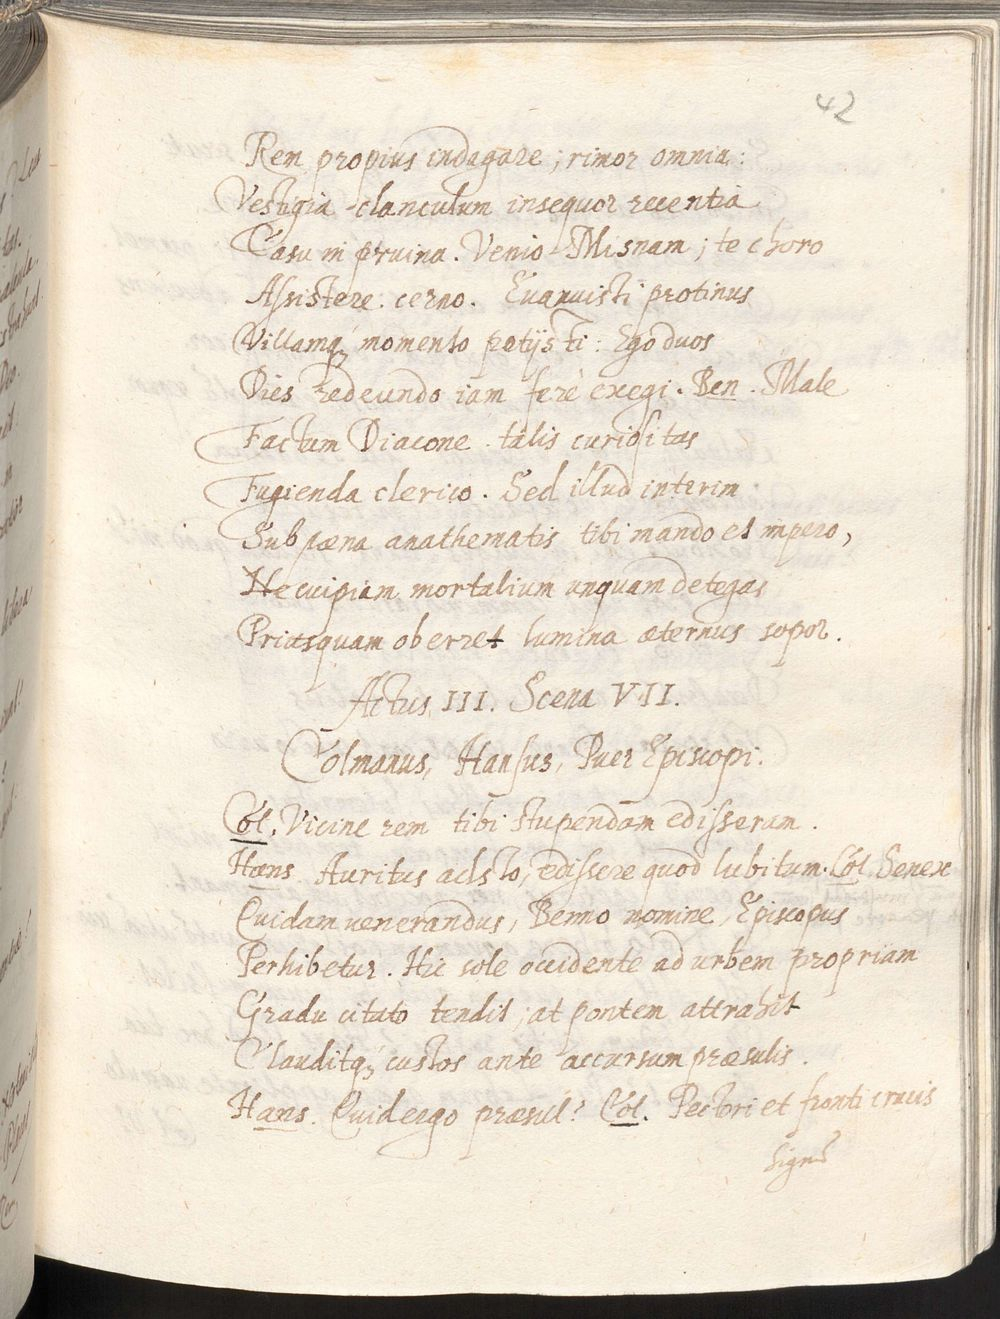 42
Rem propius indagare; rimor omnia:
Vestigia clanculum insequor recentia
Casu in pruina. Venio Misnam; te choro
Assistere cerno. Evanuisti protinus
Villamq; momento petijsti: Ego duos
Dies redeundo iam ferè exegi. Ben. Male
Factum Diacone. talis curiositas
Fugienda clerico. Sed illud interim
Sub pœna anathematis tibi mando et impero,
Ne cuipiam mortalium unquam detegas
Priusquam oberret lumina æternus sopor.
Actus III. Scena VII.
Colmanus, Hansus, Puer Episcopi.
Col. Vicine rem tibi stupendam edisseram.
Hans. Auritus adsto, edissere quod lubitum. Col. Senex
Quidam venerandus, Benno nomine, Episcopus
Perhibetur. Hic sole occidente ad urbem propriam
Gradu citato tendit; at pontem attrahit
Clauditq; custos ante accursum præsulis.
Hans. Quid ergo præsul? Col. Pectori et fronti crucis